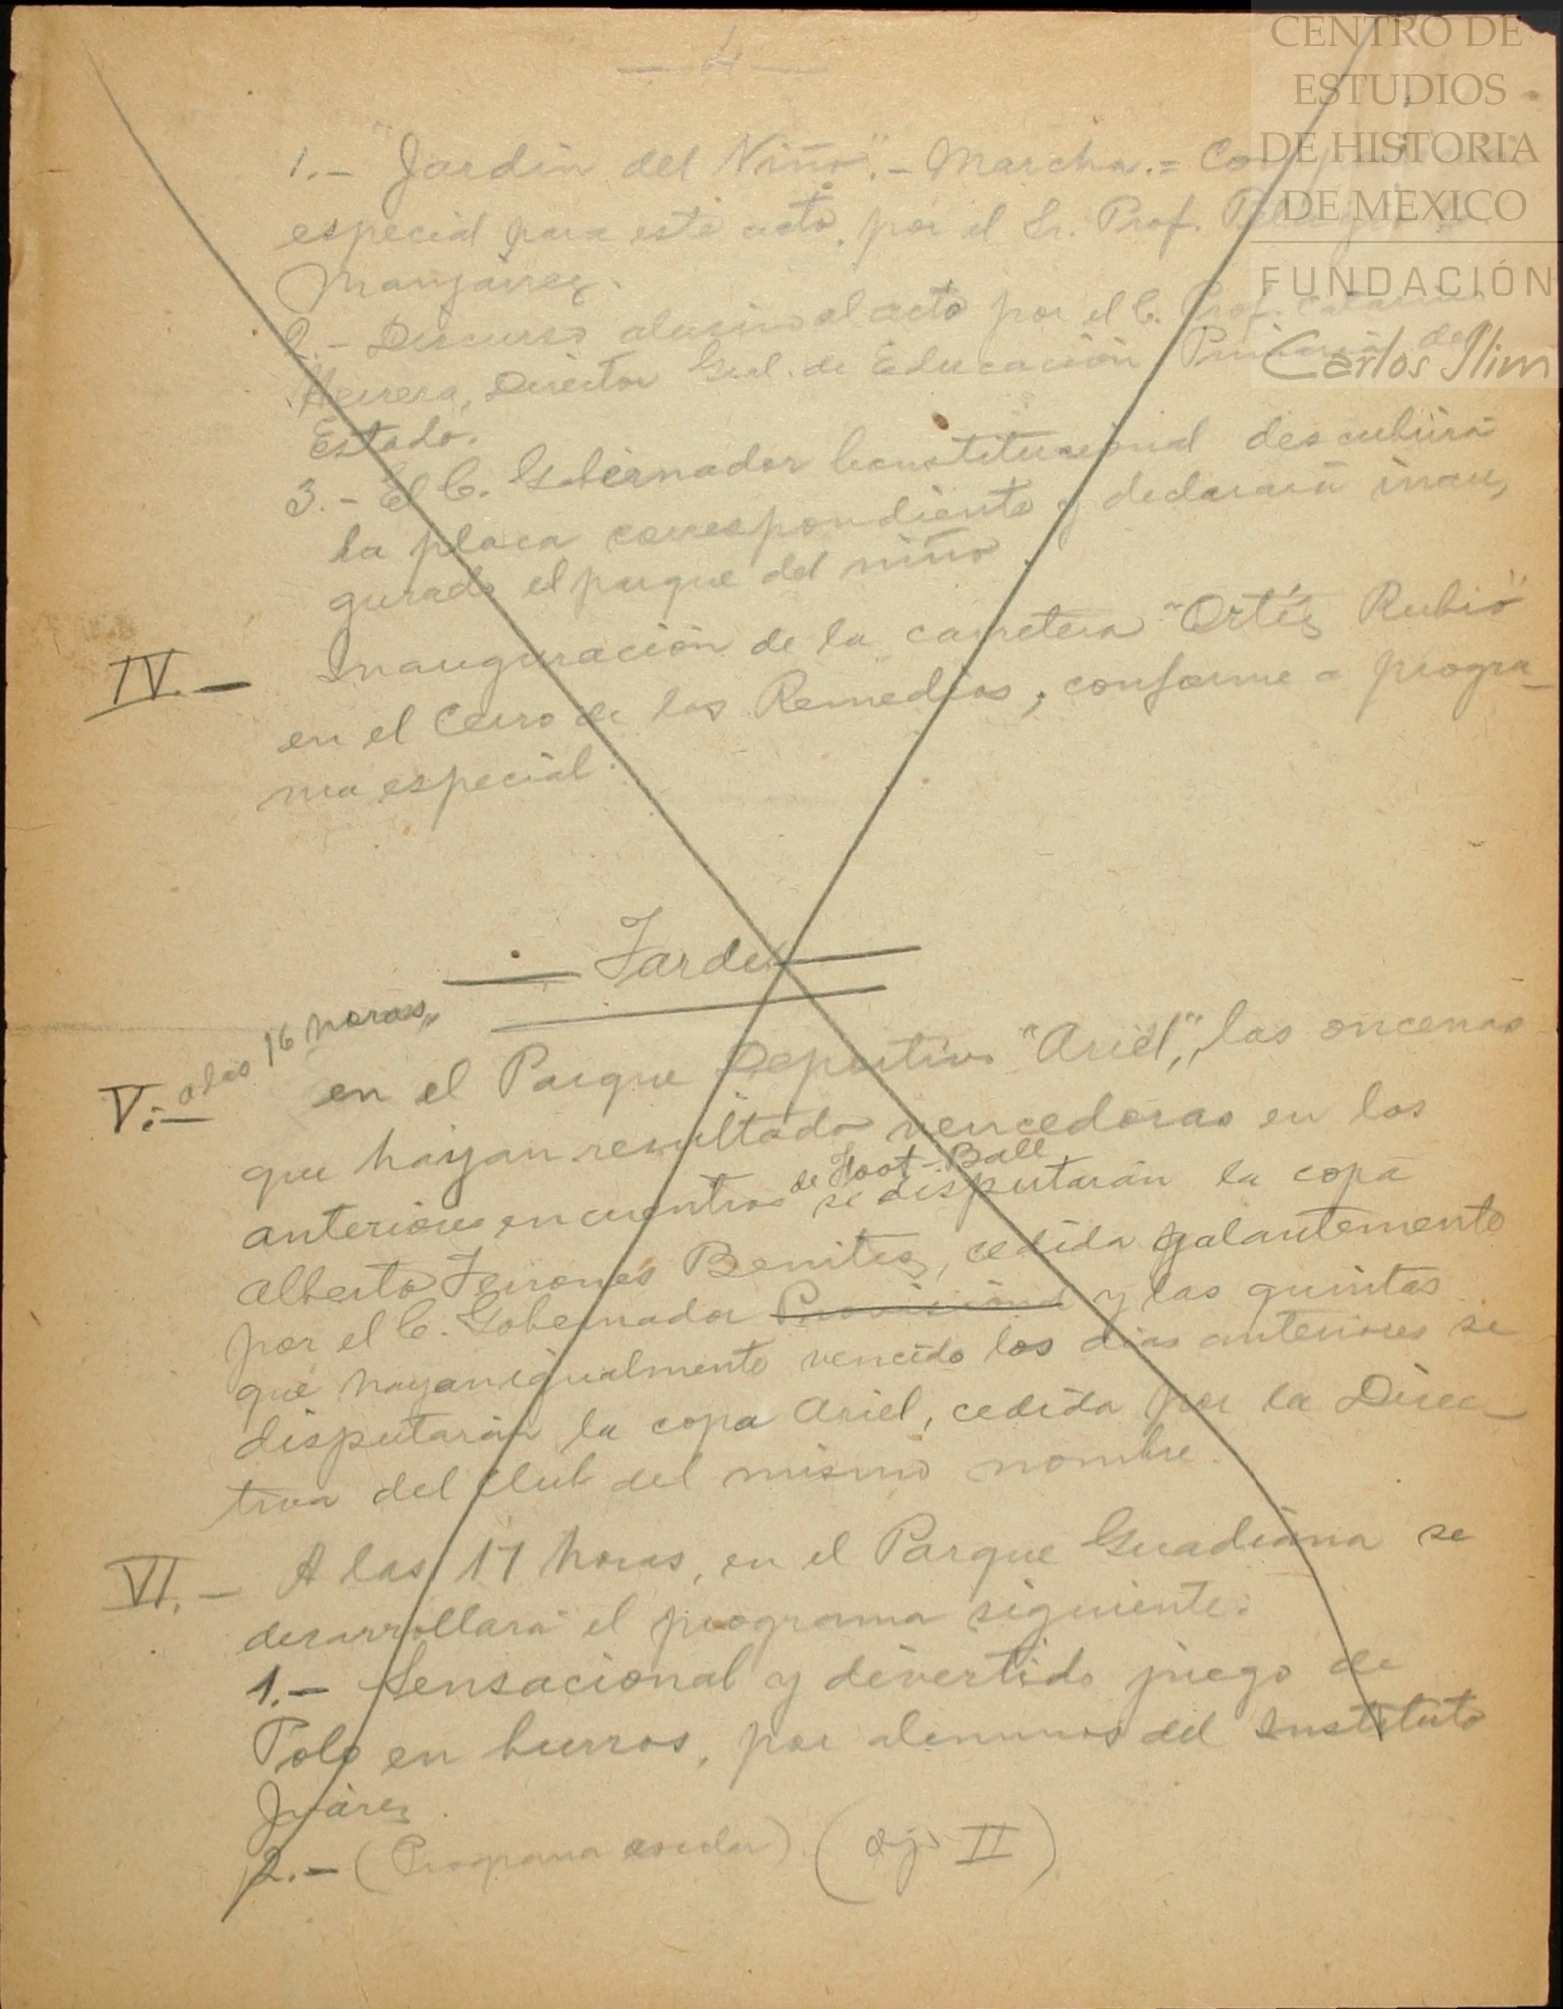 — 4 —
1.- "Jardín del Niño".- Marcha.= 
especial para este acto, por el Sr. Prof.
Manjárrez.
2.- Discurso alusivo al acto por el C. Prof. 
Herrera, Director Gral. de Educación Primaria del
Estado.
3.- El C. Gobernador Constitucional descubrirá
la placa correspondiente y declarará inau-
gurado el parque del niño.
IV.- Inauguración de la carretera "Ortíz Rubio"
en el Cerro de los Remedios, conforme a progra-
ma especial.
— Tarde —
a las 16 horas,
V.- en el Parque Deportivo "Ariel", las oncenas
que hayan resultado vencedoras en los
de Foot-Ball
anteriores encuentros se disputarán la copa
Alberto Terrones Benitez, cedida galantemente
por el C. Gobernador Provisional y las quintas
que hayan igualmente vencido los días anteriores se
disputarán la copa Ariel, cedida por la Direc-
tiva del Club del mismo nombre.
VI.- A las 17 horas, en el Parque Guadiana se
desarrollará el programa siguiente:
1.- Sensacional y divertido juego de
Polo en burros, por alumnos del Instituto
Juárez.
2.- (Programa escolar) ( II )
CENTRO DE
ESTUDIOS
DE HISTORIA
DE MEXICO
FUNDACIÓN
Carlos Slim